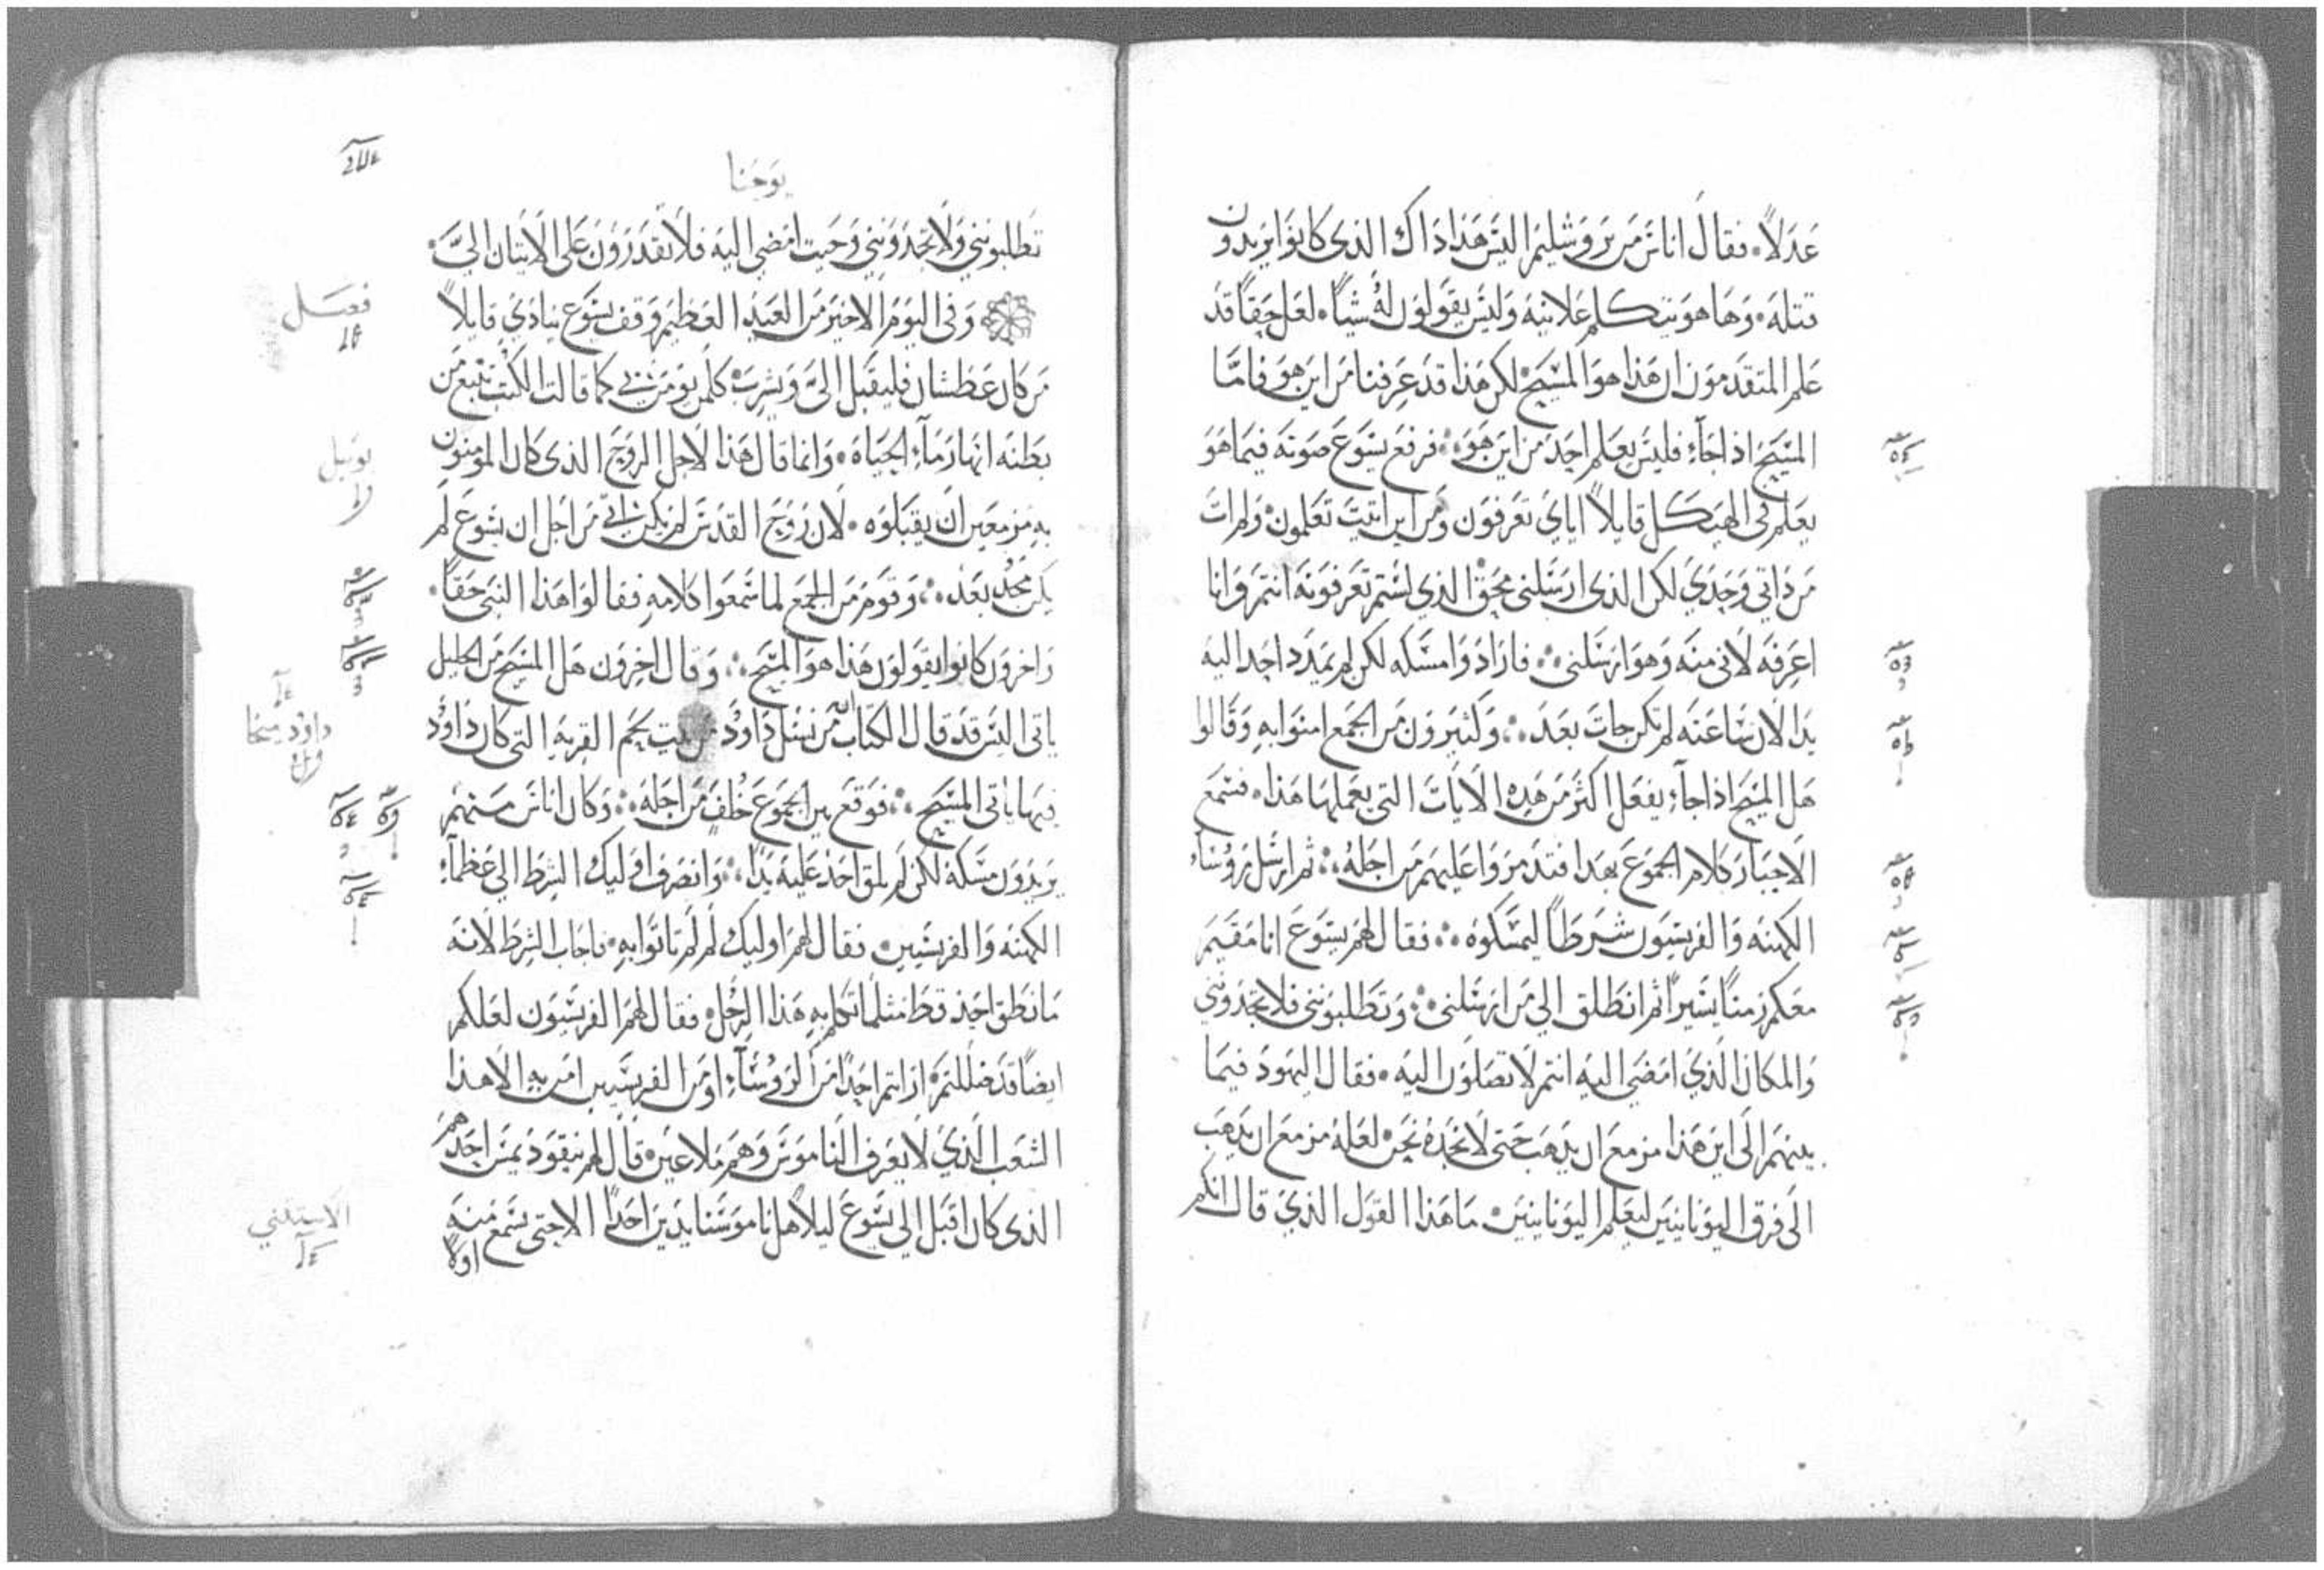 عدلاً. فقال اناس من يروشليم اليس هذا ذاك الذى كانوا يريدون
قتله. وها هو يتكلم علانيه وليس يقولون له شياً. لعل حقاً قد
علم المتقدمون ان هذا هو المسيح. لكن هذا قد عرفنا من اين هو فاما
المسيح اذا جاء فليس يعلم احد من اين هو. فرفع يسوع صوته فيما هو
يعلم فى الهيكل قايلاً اياي تعرفون ومن اين اتيت تعلمون. ولم ات
من ذاتي وحدي لكن الذى ارسلنى محق الذي لستم تعرفونه انتم وانا
اعرفه لانى منه وهو ارسلنى. فارادوا مسكه لكن لم يمدد احد اليه
يدا لان ساعته لم تكن جات بعد. وكثيرون من الجمع امنوا به وقالوا
هل المسيح اذا جاء يفعل اكثر من هذه الايات التى يعملها هذا. فسمع
الاحبار كلام الجموع بهدا فتدمروا عليهم من اجله. ثم ارسل روساء
الكهنه والفريسيون شرطاً ليمسكوه. فقال لهم يسوع انا مقيم
معكم زمناً يسيراً ثم انطلق الى من ارسلنى. وتطلبوننى فلا تجدوننى
والمكان الذي امضى اليه انتم لا تصلون اليه. فقال اليهود فيما
بينهم الى اين هذا مزمع ان يذهب حتى لا نجده نحن. لعله مزمع ان يذهب
الى فرق اليونانيين ليعلم اليونانيين. ما هذا القول الذي قال انكم
يوحنا
تطلبوننى ولا تجدوننى وحيت امضى اليه فلا تقدرون على الاتيان اليّ.
وفى اليوم الاخير من العيد العظيم وقف يسوع ينادي قايلاً
فصل
من كان عطشان فليقبل اليّ ويشرب. كلمن يومن بى كما قالت الكتب تنبع من
بطنه انهار ماء الحياه. وانما قال هذا لاجل الروح الذى كان المومنون
يوييل
به مزمعين ان يقبلوه. لان روح القدس لم يكن اتى من اجل ان يسوع لم
يكن مجد بعد. وقوم من الجمع لما سمعوا كلامه فقالوا هذا النبى حقاً.
واخرون كانوا يقولون هذا هو المسيح. وقال اخرون هل المسيح من الجليل
ياتى اليس قد قال الكتاب انّ من نسل داوُد بيت لحم القريه التى كان داوُد
داوُد ميخا
فيها ياتى المسيح. فوقع بين الجموع خلف من اجله. وكان اناس منهم
يريدون مسكه لكن لم يلق احد عليه يداً. وانصرف اوليك الشرط الى عظماء
الكهنه والفريسيين. فقال لهم اوليك لم لم تاتوا به. فاجاب الشرط لانه
ما نطق احد قط مثلما تكلم به هذا الرجل. فقال لهم الفريسيون لعلكم
ايضاً قد ضللتم. ارايتم احداً من الروساء او من الفريسيين امن به الا هذا
الشعب الذي لا يعرف الناموس وهم ملاعين. قال لهم نيقوديمس احدهم
الذى كان اقبل الى يسوع ليلاً هل ناموسنا يدين احداً الا حتى يسمع منه
الاستثنى
اولاً